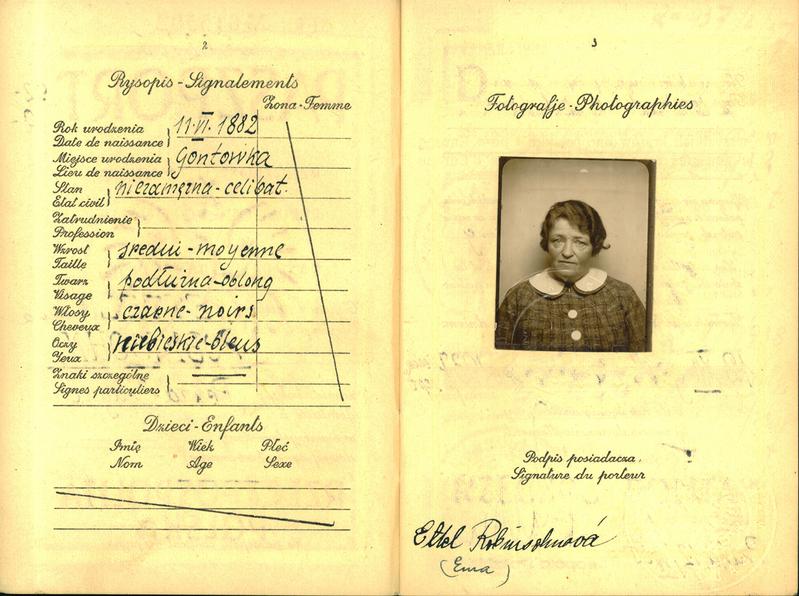 2
Rysopis - Signalements
Żona - Femme
Rok urodzenia
Date de naissance
11.VI.1882
Miejsce urodzenia
Lieu de naissance
Gontowka
Stan
Etat civil
niezamężna - celibat.
Zatrudnienie
Profession
Wzrost
Taille
średni - moyenne
Twarz
Visage
podłużna - oblong
Włosy
Cheveux
czarne - noirs
Oczy
Yeux
niebieskie - bleus
Znaki szczególne
Signes particuliers
Dzieci - Enfants
Imię Wiek Płeć
Nom Age Sexe
3
Fotografje - Photographies
Podpis posiadacza.
Signature du porteur
Robinsohnová
(Ema)